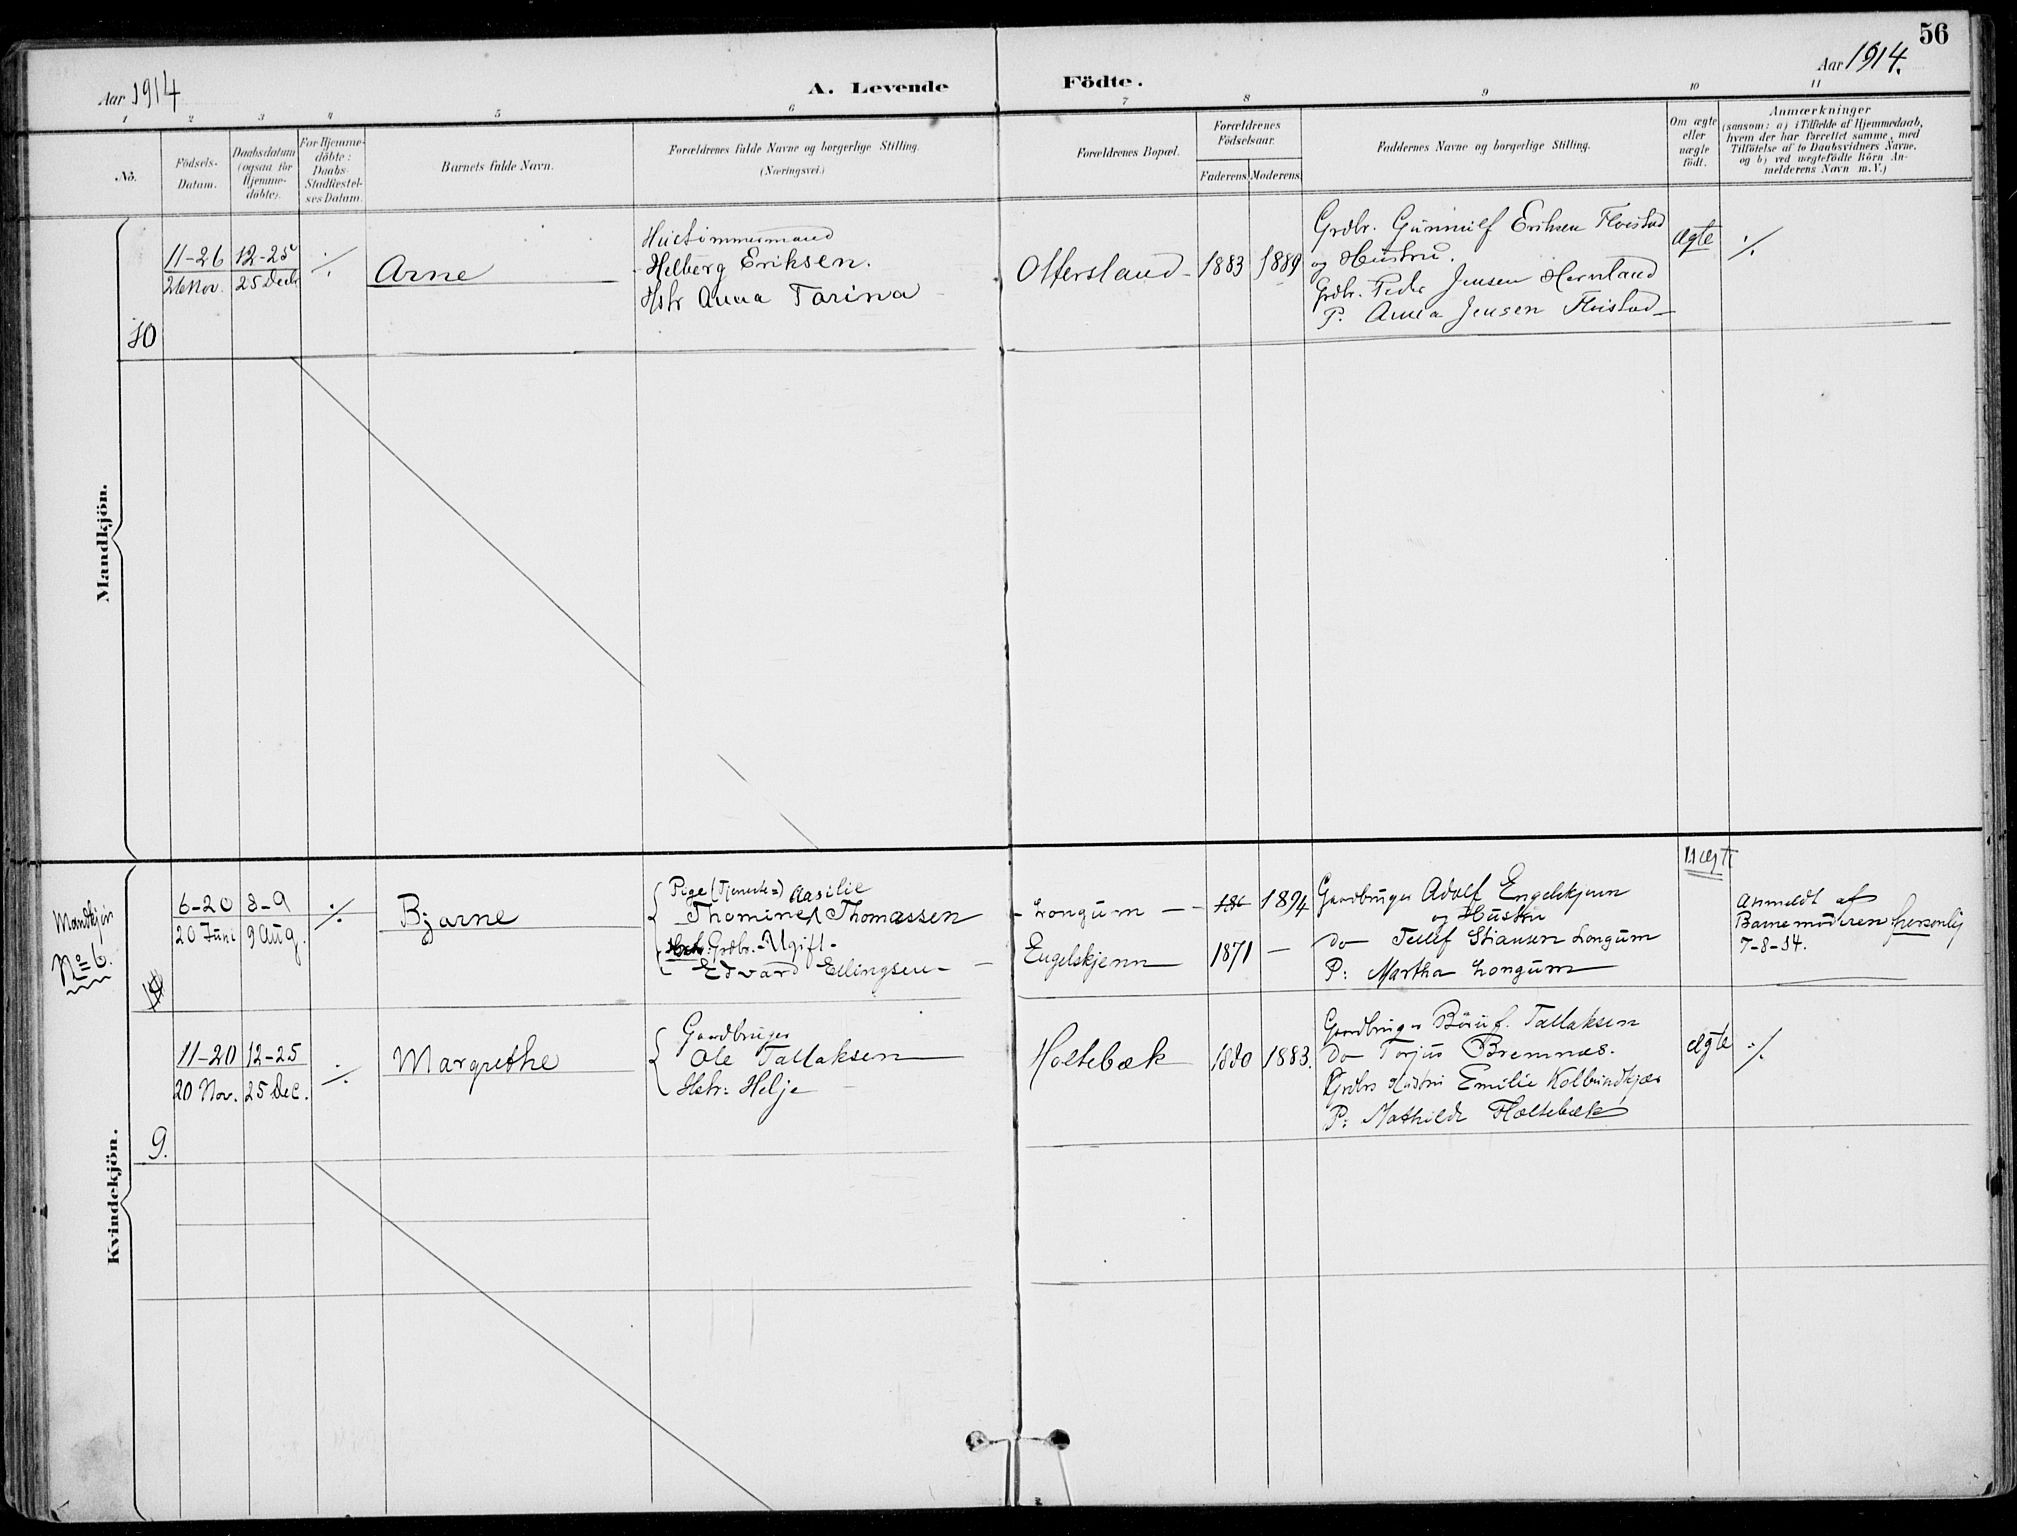 56
Aar 1914
A. Levende Födte.
Aar 1914.
1 2 3 4 5 6 7 8 9 10 11
No.
Födsels-
Datum.
Daabsdatum
(ogsaa for
Hjemme-
döbte).
For Hjemme-
döbte:
Daabs-
Stadfæstel-
ses Datum.
Barnets fulde Navn.
Forældrenes fulde Navne og borgerlige Stilling.
(Næringsvei.)
Forældrenes Bopæl.
Forældrenes
Födselsaar.
Faderens. Moderens.
Faddernes Navne og borgerlige Stilling.
Om ægte
eller
uægte
födt.
Anmærkninger
(saasom: a) i Tilfælde af Hjemmedaab,
hvem der har forrettet samme, med
Tilföielse af to Daabsvidners Navne.
og b) ved uægtefödte Börn An-
melderens Navn m.V.)
Mandkjön.
10
11-26
26 Nov.
12-25
25 Decbr
./.
Arne
Hustömmermand
Helberg Eriksen.
Hstr Anna Tarina
Ottersland
1883 1889
Grdbr. Gunnulf Eriksen Floistad
og Hustru.
Grdbr. Peder Jensen
P. Anna Jensen Floistad
Ægte
./.
Kvindekjön.
Mandkjön
No 6.
6-20
20 Juni
8-9
9 Aug.
./.
Bjarne
Pige (Tjeneste=) Aasilie
Thomine Thomassen
Grdbr. - Ugift -
Edvard Ellingsen
Longum
Engelskjenn
186 1894
1871 -
Gaardbruger Adolf Engelskjenn
og Hustru
Do Tellef Stiansen Longum
P: Martha Longum
Uægte
Anmeldt af
Barnemoderen personlig
7-8-14.
9.
11-20
20 Nov.
12-25
25 Dec.
./.
Margrethe
Gaardbruger
Ole Tallaksen
Hstr: Helje
Holtebæk
1880 1883.
Gaardbruger Tallaksen
Do Torjus Bremnæs.
Grdbrs Hustru Emilie
P: Mathilde Holtebæk
Ægte
./.